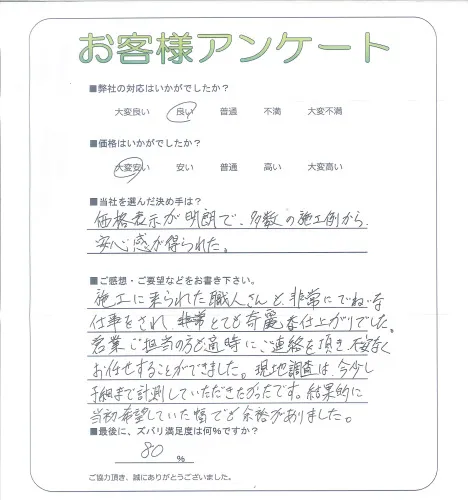 お客様アンケート
■弊社の対応はいかがでしたか？
大変良い 良い 普通 不満 大変不満
■価格はいかがでしたか？
大変安い 安い 普通 高い 大変高い
■当社を選んだ決め手は？
価格表示が明朗で、多数の施工例から
安心感が得られた。
■ご感想・ご要望などをお書き下さい。
施工に来られた職人さんも非常にていねいな
仕事をされ、とても奇麗な仕上がりでした。
営業ご担当の方も適時にご連絡を頂き、なく
お任せすることができました。現地調査は、今少し
まで計測していただきたかったです。結果的に
当初希望していた幅でも余裕がありました。
■最後に、ズバリ満足度は何%ですか？
80 %
ご協力頂き、誠にありがとうございました。